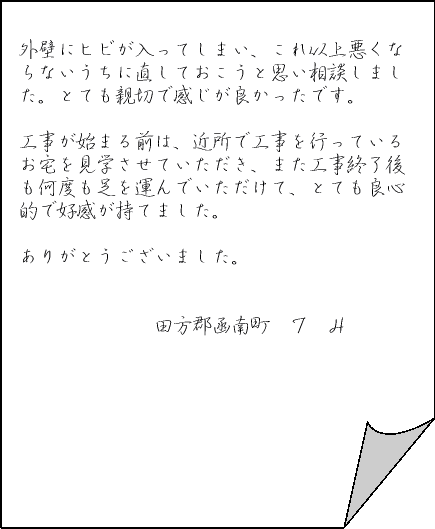 外壁にヒビが入ってしまい、これ以上悪くな
らないうちに直しておこうと思い相談しまし
た。とても親切で感じが良かったです。
工事が始まる前は、近所で工事を行っている
お宅を見学させていただき、また工事終了後
も何度も足を運んでいただけて、とても良心
的で好感が持てました。
ありがとうございました。
田方郡函南町 T M